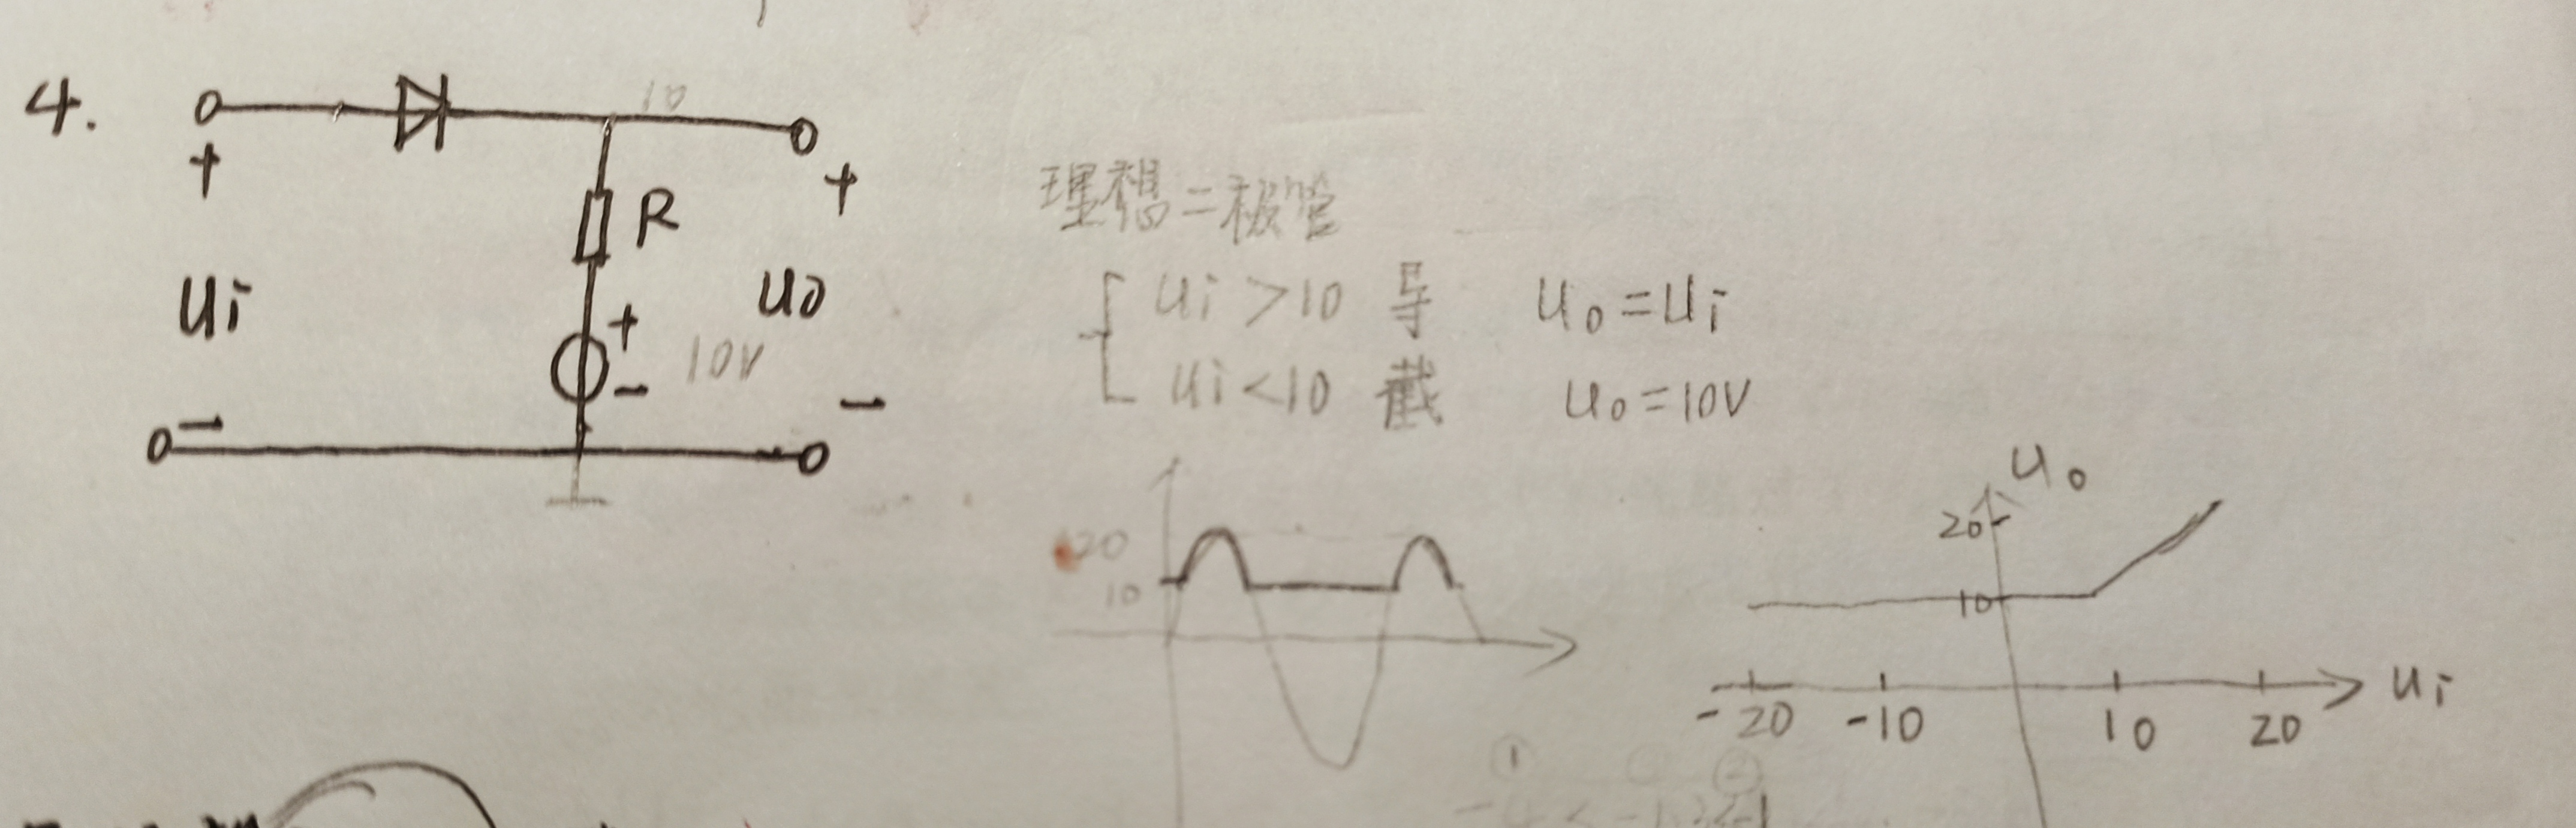 4.
10
+
+
R
Ui
+
Uo
10V
-
-
-
理想二极管
Ui>10 导 Uo=Ui
Ui<10 截 Uo=10V
20
10
Uo
20
10
Ui
-20 -10 10 20
① ②